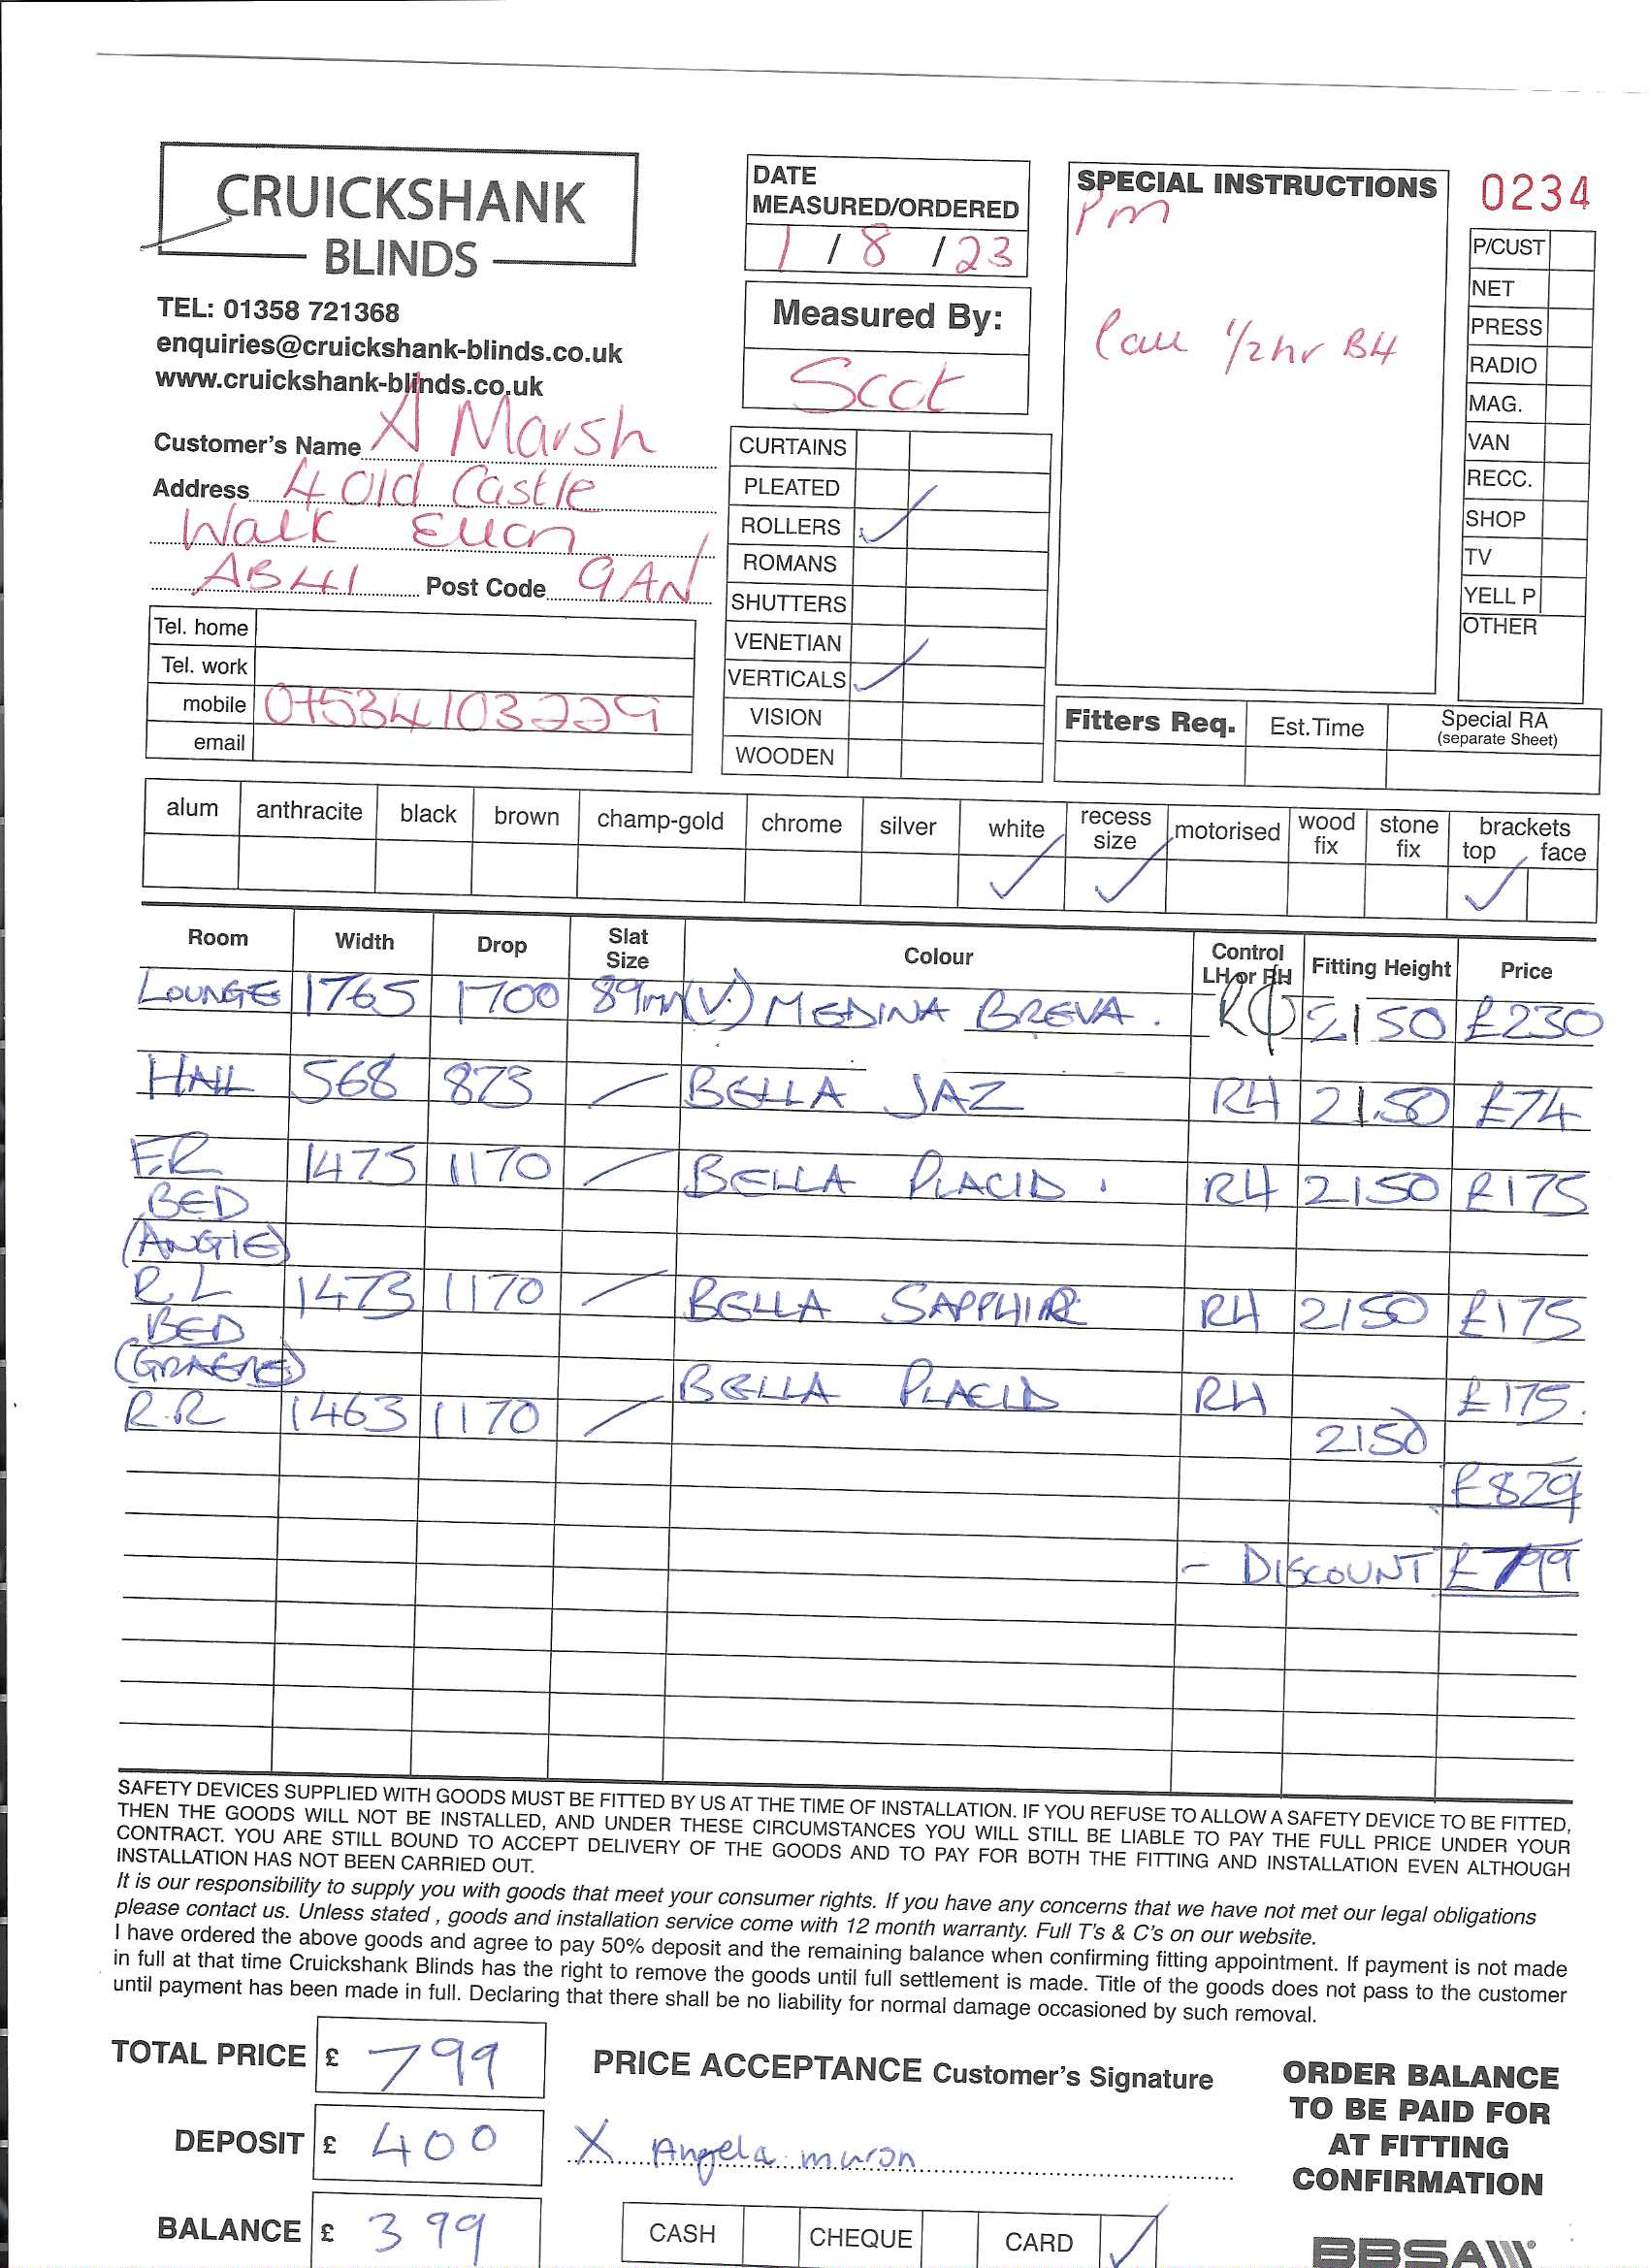 CRUICKSHANK
BLINDS
TEL: 01358 721368
enquiries@cruickshank-blinds.co.uk
www.cruickshank-blinds.co.uk
Customer's Name A Marsh
Address 4 Old Castle
Walk Ellon
AB41 Post Code 9AN
Tel. home
Tel. work
mobile 07534103229
email
DATE
MEASURED/ORDERED
1 / 8 / 23
Measured By:
Scot
CURTAINS
PLEATED
ROLLERS ✓
ROMANS
SHUTTERS
VENETIAN
VERTICALS ✓
VISION
WOODEN
SPECIAL INSTRUCTIONS
Pm
Call 1/2 hr B4
0234
P/CUST
NET
PRESS
RADIO
MAG.
VAN
RECC.
SHOP
TV
YELL P
OTHER
Fitters Req. Est.Time Special RA
(separate Sheet)
alum anthracite black brown champ-gold chrome silver white ✓ recess size ✓ motorised wood fix stone fix brackets top ✓ face
Room Width Drop Slat Size Colour Control LH or RH Fitting Height Price
LOUNGE 1765 1700 89mm (V) MEDINA BREVA. R 2150 £230
HALL 568 873 / BELLA JAZ RH 2150 £74
F.R 1475 1170 / BELLA PLACID. RH 2150 £175
BED
(ANGIE)
R.L 1473 1170 / BELLA SAPPHIRE RH 2150 £175
BED
(GRAEME)
R.R 1463 1170 / BELLA PLACID RH 2150 £175.
£829
- DISCOUNT £799
SAFETY DEVICES SUPPLIED WITH GOODS MUST BE FITTED BY US AT THE TIME OF INSTALLATION. IF YOU REFUSE TO ALLOW A SAFETY DEVICE TO BE FITTED,
THEN THE GOODS WILL NOT BE INSTALLED, AND UNDER THESE CIRCUMSTANCES YOU WILL STILL BE LIABLE TO PAY THE FULL PRICE UNDER YOUR
CONTRACT. YOU ARE STILL BOUND TO ACCEPT DELIVERY OF THE GOODS AND TO PAY FOR BOTH THE FITTING AND INSTALLATION EVEN ALTHOUGH
INSTALLATION HAS NOT BEEN CARRIED OUT.
It is our responsibility to supply you with goods that meet your consumer rights. If you have any concerns that we have not met our legal obligations
please contact us. Unless stated , goods and installation service come with 12 month warranty. Full T's & C's on our website.
I have ordered the above goods and agree to pay 50% deposit and the remaining balance when confirming fitting appointment. If payment is not made
in full at that time Cruickshank Blinds has the right to remove the goods until full settlement is made. Title of the goods does not pass to the customer
until payment has been made in full. Declaring that there shall be no liability for normal damage occasioned by such removal.
TOTAL PRICE £ 799
DEPOSIT £ 400
BALANCE £ 399
PRICE ACCEPTANCE Customer's Signature
X Angela
CASH CHEQUE CARD ✓
ORDER BALANCE
TO BE PAID FOR
AT FITTING
CONFIRMATION
BBSA